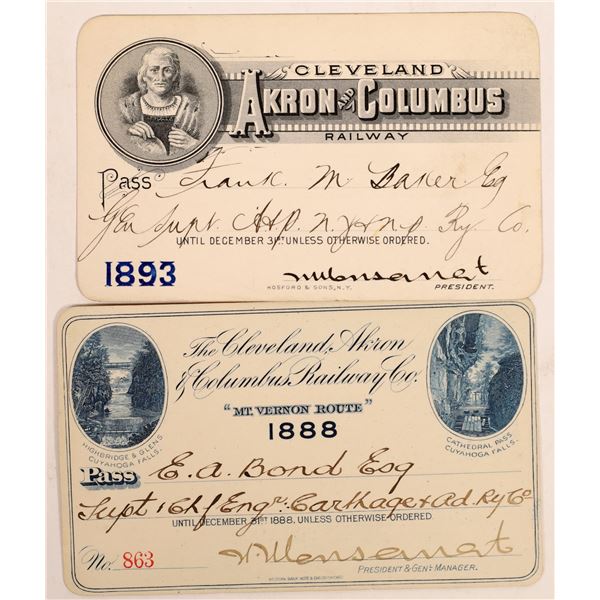 CLEVELAND
AKRON AND COLUMBUS
RAILWAY
Pass Frank. M Baker Esq
Gen Supt. Ry. Co.
UNTIL DECEMBER 31ST UNLESS OTHERWISE ORDERED.
1893
N Monsarrat
HOSFORD & SONS, N.Y. PRESIDENT.
The Cleveland, Akron
& Columbus Railway Co.
"MT. VERNON ROUTE"
1888
HIGHBRIDGE & GLENS
CUYAHOGA FALLS.
CATHEDRAL PASS
CUYAHOGA FALLS.
Pass E. A. Bond Esq
Supt & Chf Engr. Carthage & Ad. Ry Co
UNTIL DECEMBER 31ST 1888, UNLESS OTHERWISE ORDERED
No. 863
N. Monsarrat
PRESIDENT & GEN'L MANAGER.